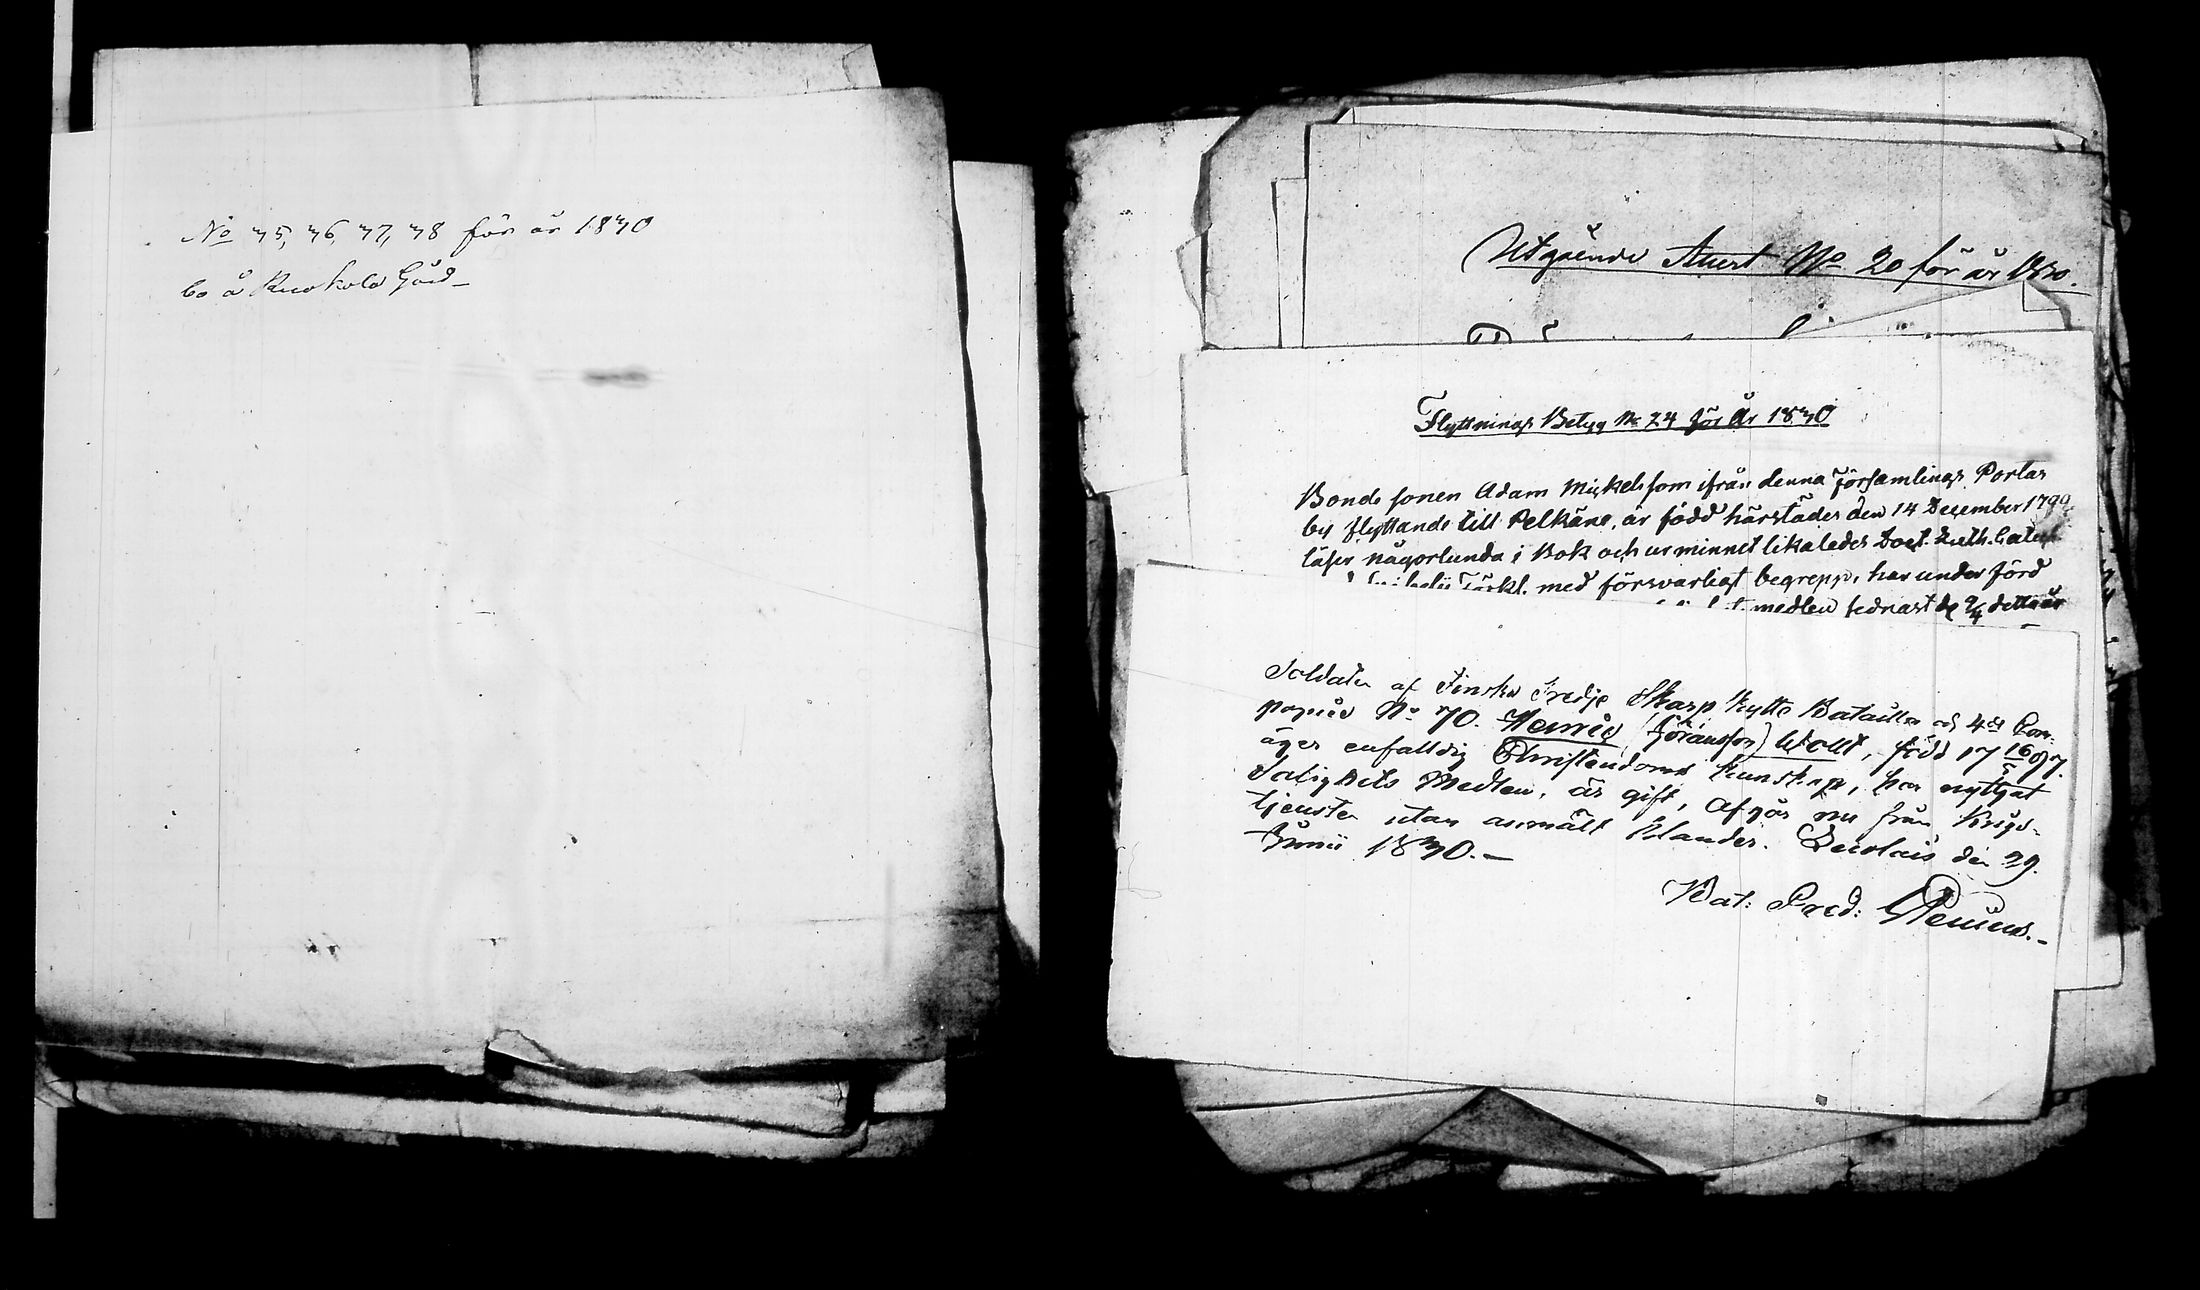 No 35, 36, 37, 38 för år 1830
bo å Ruokola Gård
Utgående Attest No 20 för år 1830.
Flyttnings Betyg No 24 för År 1830
Bonde sonen Adam Mickelsson ifrån denna Församlings Porlas
by flyttande till Pelkäne, är född härstädes den 14 December 1799
läser någorlunda i Bok och ur minnet likaledes Doct. Luth. Catech
med försvarligt begrepp, har under förd
medlen sednast d 9/4 detta år
Soldaten af Finska Tredje Skarp Skytte Bataillon och 4de Com-
pagnie No 70. Henric (Göransson) Wolt, född 17 16/5 97.
äger enfalldig Christendoms kunskap, har nyttjat
Salighets Medlen, är gift, Afgår nu från Krigs-
tjensten utan anmält Klander. Qvolais den 29.
Junii 1830.
Bat: Pred: